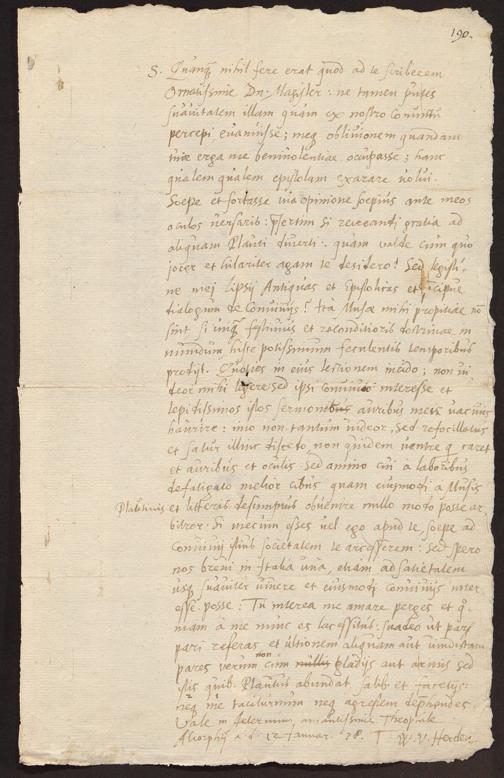 190.
S. Quamq nihil fere erat quod ad te scriberem
Ornatissime Dn. Magister: ne tamen putes
suavitatem illam quam ex nostro Convictu
percepi evanuisse; meq oblivionem quandam
tuae erga me benivolentiae occupasse; hanc
qualem qualem epistolam exarare volui.
Soepe et fortasse tua opinione soepius ante meos
oculos versaris: psertim si recreandi gratia ad
aliquam Plauti diverti: quam valde cum quo
jocer et hilariter agam te desidero! Sed legisti
ne mei Lipsij Antiquas et Epistolicas et pcipue
dialogum de Convivijs? Ita Musae mihi propitiae nō
sint si unq festivius et reconditioris doctrinae in
mundum hisce potissimum feculentis temporibus
prodijt. Quoties in eius lectionem incido; non vi
deor mihi legere sed ipsi convivio interesse et
lepidissimos istos sermones auribus meis vacuis
haurire: imo non tantum videor, Sed refocillatus
et satur illinc discedo non quidem ventre q caret
et auribus et oculis Sed animo cui à laboribus
defatigato melior cibus quam eiusmodi à Musis
et litteris desumptus obvenire nullo modo posse ar
bitror. Si mecum esses vel ego apud te soepe ad
Convivij istius societatem te arcesserem: Sed spero
nos brevi in Italia unà, etiam ad satietatem
usq suaviter vivere et eiusmodi convivijs inter
esse posse: Tu interea me amare perges et q
niam à me nunc es lacessitus suadeo ut par
pari referas et ultionem aliquam aut vindictam
pares verum non cum nullis gladijs aut armis sed
istis quib. Plautus abundat salib et facetijs:
neq me taciturnum neq agrestem dephendes
Vale in aeternum, amantissime Theophile
Altorphij a. d. 12 Januar. 78. T. W. V. Herden